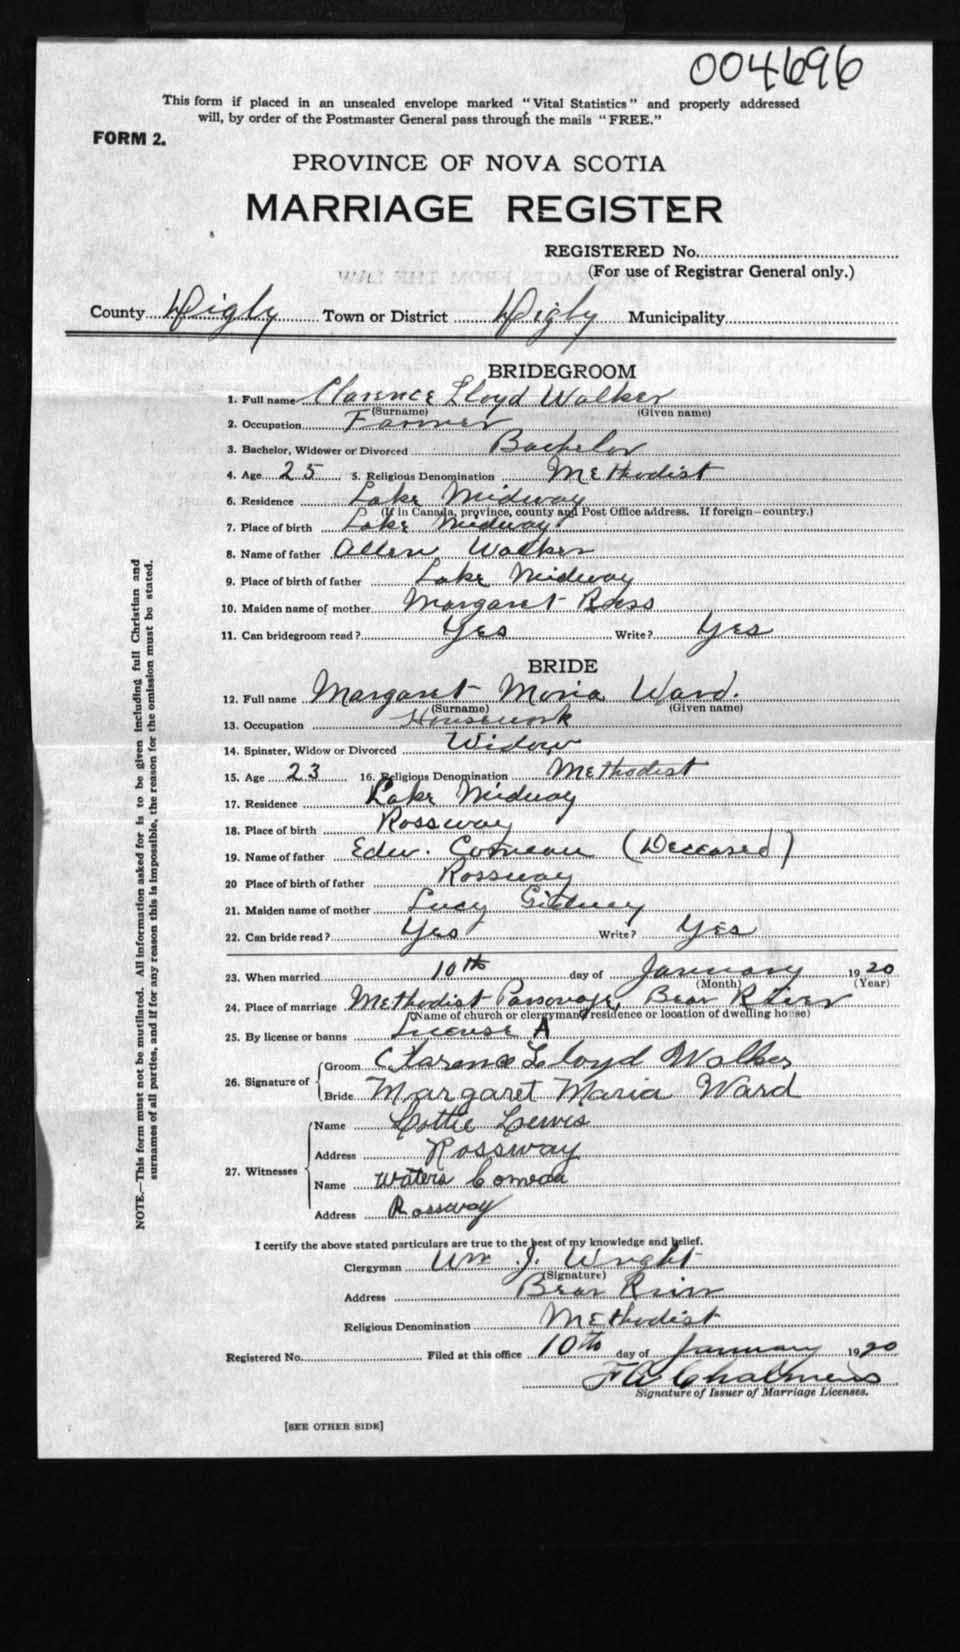 004696
This form if placed in an unsealed envelope marked "Vital Statistics" and properly addressed
will, by order of the Postmaster General pass through the mails "FREE."
FORM 2.
PROVINCE OF NOVA SCOTIA
MARRIAGE REGISTER
REGISTERED No.
(For use of Registrar General only.)
County Digby Town or District Digby Municipality
BRIDEGROOM
1. Full name Clarence Lloyd Walker
(Surname) (Given name)
2. Occupation Farmer
3. Bachelor, Widower or Divorced Bachelor
4. Age 25 5. Religious Denomination Methodist
6. Residence Lake Midway
(If in Canada, province, county and Post Office address. If foreign—country.)
7. Place of birth Lake Midway
8. Name of father Allen Walker
9. Place of birth of father Lake Midway
10. Maiden name of mother Margaret Ross
11. Can bridegroom read? Yes Write? Yes
BRIDE
12. Full name Margaret Moria Ward.
(Surname) (Given name)
13. Occupation Housework
14. Spinster, Widow or Divorced Widow
15. Age 23 16. Religious Denomination Methodist
17. Residence Lake Midway
18. Place of birth Rossway
19. Name of father Edw. Comeau (Deceased)
20 Place of birth of father Rossway
21. Maiden name of mother Lucy Gidney
22. Can bride read? Yes Write? Yes
23. When married 10th day of January 1920
(Month) (Year)
24. Place of marriage Methodist Parsonage, Bear River
(Name of church or clergyman's residence or location of dwelling house)
25. By license or banns License A
26. Signature of Groom Clarence Lloyd Walker
Bride Margaret Maria Ward
27. Witnesses Name Lottie Lewis
Address Rossway
Name Waters Comeau
Address Rossway
I certify the above stated particulars are true to the best of my knowledge and belief.
Clergyman Wm J. Wright
(Signature)
Address Bear River
Religious Denomination Methodist
Registered No. Filed at this office 10th day of January 1920
Chalmers
Signature of Issuer of Marriage Licenses.
[SEE OTHER SIDE]
NOTE.—This form must not be mutilated. All information asked for is to be given including full Christian and
surnames of all parties, and if for any reason this is impossible, the reason for the omission must be stated.